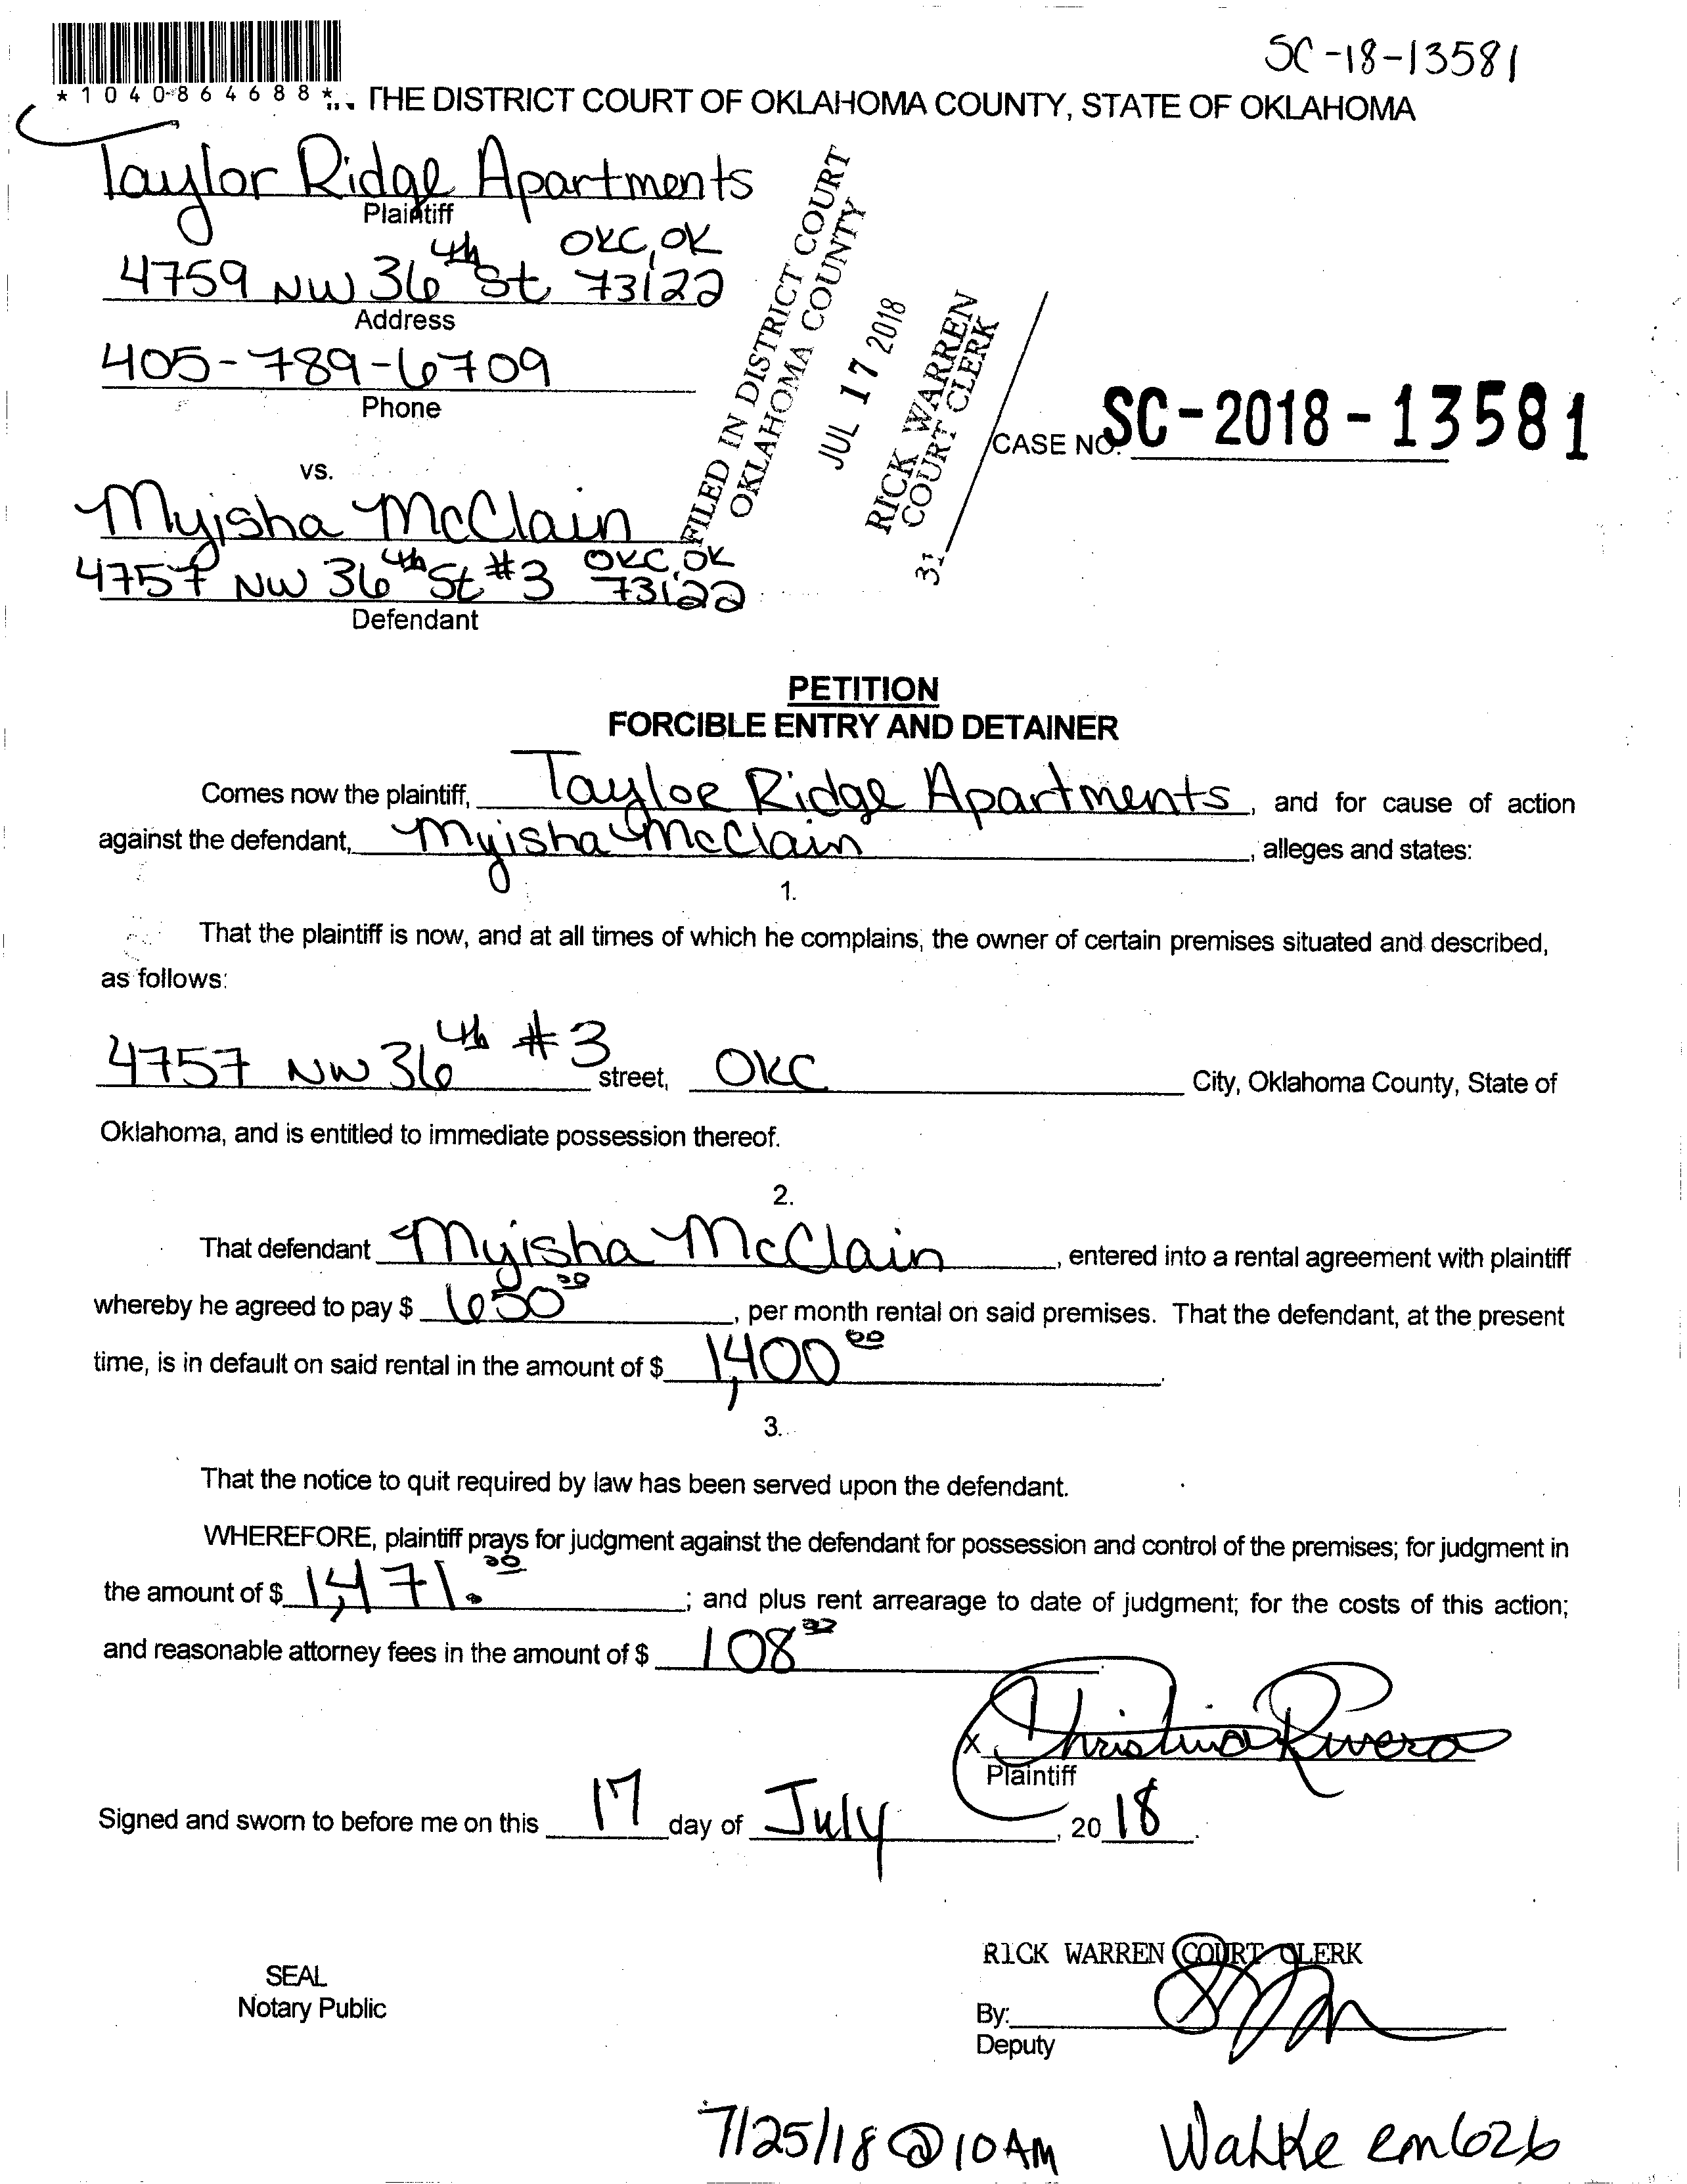 SC-18-13581
*1040864688*
THE DISTRICT COURT OF OKLAHOMA COUNTY, STATE OF OKLAHOMA
Taylor Ridge Apartments
Plaintiff
OKC, OK
4759 NW 36th St 73122
Address
405-789-6709
Phone
FILED IN DISTRICT COURT
OKLAHOMA COUNTY
JUL 17 2018
RICK WARREN
COURT CLERK
31
CASE NO. SC-2018-13581
vs.
Myisha McClain
4757 NW 36th St #3 OKC, OK 73122
Defendant
PETITION
FORCIBLE ENTRY AND DETAINER
Comes now the plaintiff, Taylor Ridge Apartments, and for cause of action
against the defendant, Myisha McClain, alleges and states:
1.
That the plaintiff is now, and at all times of which he complains, the owner of certain premises situated and described,
as follows:
4757 NW 36th #3 street, OKC City, Oklahoma County, State of
Oklahoma, and is entitled to immediate possession thereof.
2.
That defendant Myisha McClain, entered into a rental agreement with plaintiff
whereby he agreed to pay $ 650.00, per month rental on said premises. That the defendant, at the present
time, is in default on said rental in the amount of $ 1,400.00.
3.
That the notice to quit required by law has been served upon the defendant.
WHEREFORE, plaintiff prays for judgment against the defendant for possession and control of the premises; for judgment in
the amount of $ 1,471.00; and plus rent arrearage to date of judgment; for the costs of this action;
and reasonable attorney fees in the amount of $ 108
x Christina Rivera
Plaintiff
Signed and sworn to before me on this 17 day of July, 2018.
SEAL
Notary Public
RICK WARREN COURT CLERK
By:
Deputy
7/25/18 @ 10 AM
rm 626